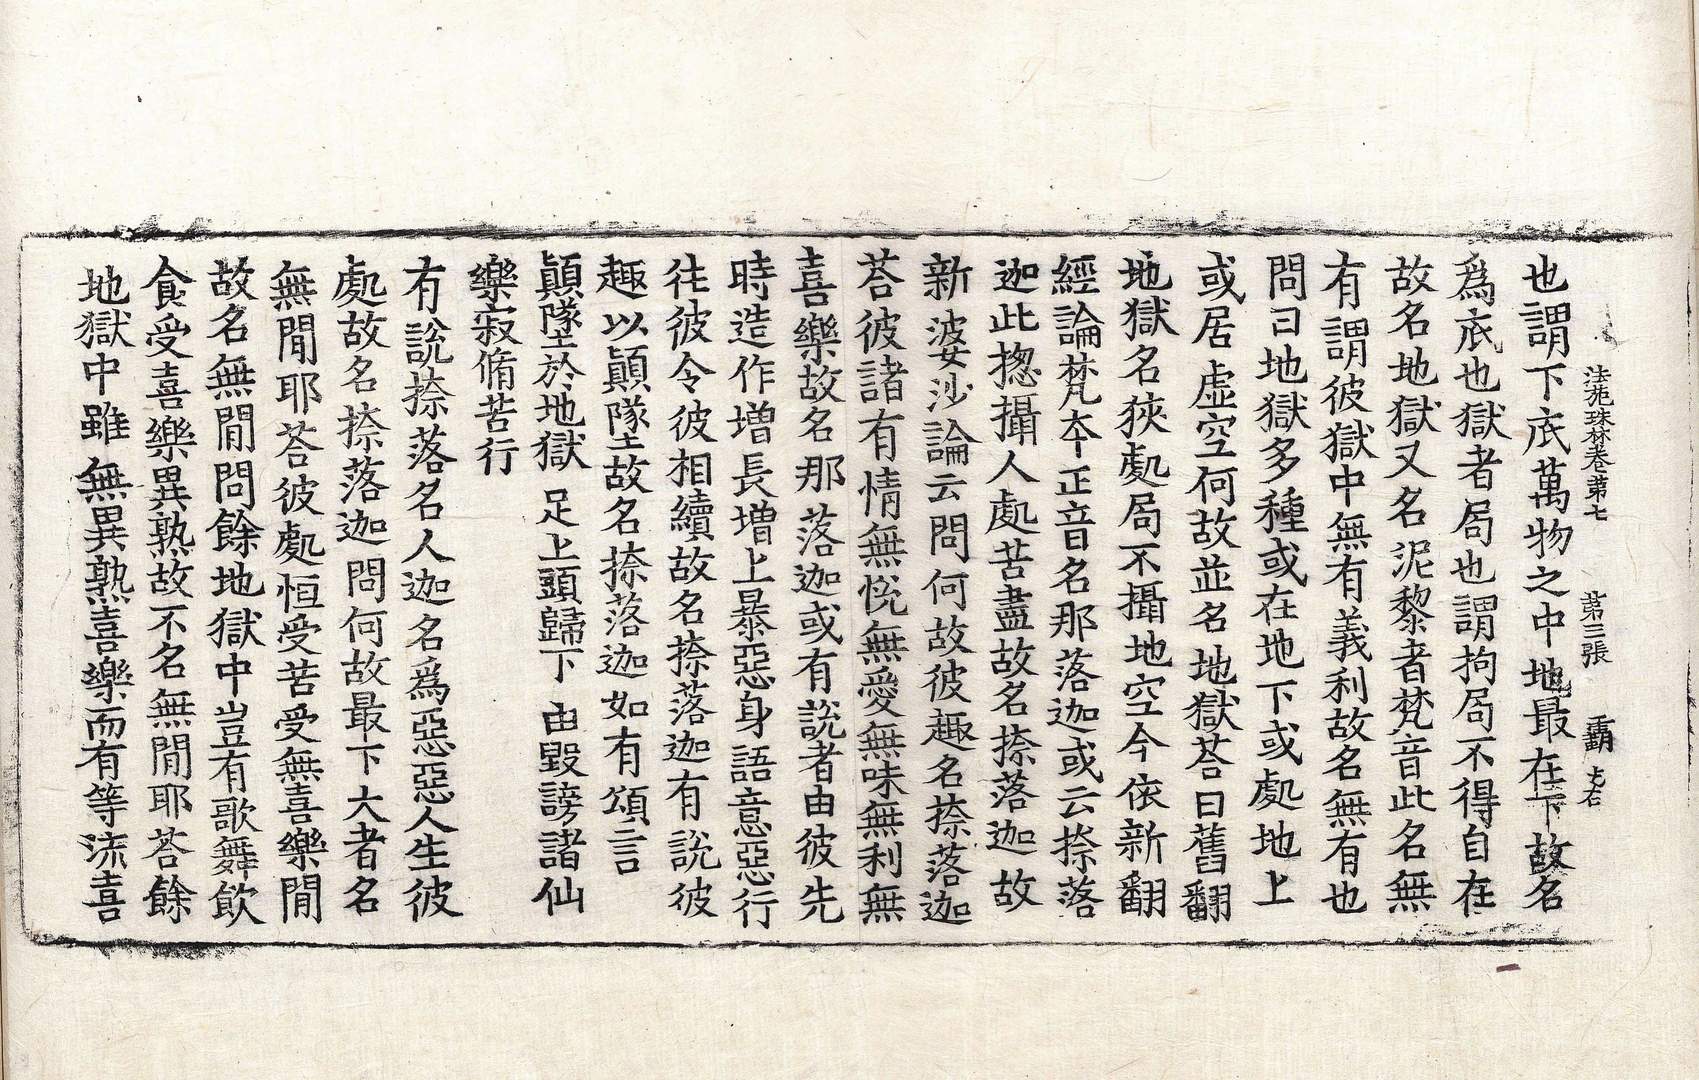 法苑珠林卷第七　第三張　霸
也謂下底萬物之中地最在下故名
爲底也獄者局也謂拘局不得自在
故名地獄又名泥黎者梵音此名無
有謂彼獄中無有義利故名無有也
問曰地獄多種或在地下或處地上
或居虛空何故並名地獄荅曰舊翻
地獄名狹處局不攝地空今依新翻
經論梵夲正音名那落迦或云捺落
迦此揔攝人處苦盡故名捺落迦故
新婆沙論云問何故彼趣名捺落迦
荅彼諸有情無悅無愛無味無利無
喜樂故名那落迦或有說者由彼先
時造作增長增上暴惡身語意惡行
往彼令彼相續故名捺落迦有說彼
趣以顛墜故名捺落迦如有頌言
顛墜於地獄　足上頭歸下　由毀謗諸仙
樂寂脩苦行
有說捺落名人迦名爲惡惡人生彼
處故名捺落迦問何故最下大者名
無閒耶荅彼處恒受苦受無喜樂閒
故名無閒問餘地獄中豈有歌舞飮
食受喜樂異熟故不名無閒耶荅餘
地獄中雖無異熟喜樂而有等流喜